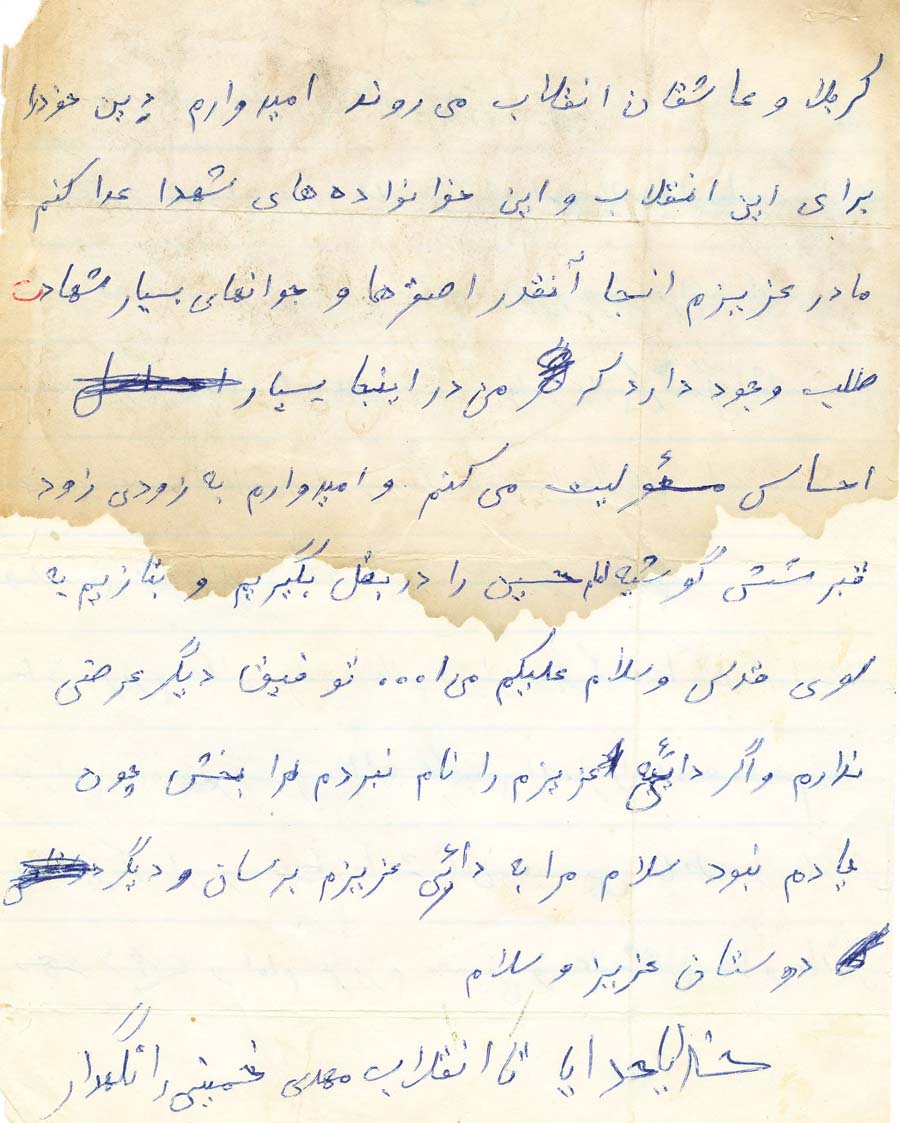 کربلا و عاشقان انقلاب می روند امیدوارم دین خودرا
برای این انقلاب و این خوانواده های شهدا عدا کنم
مادر عزیزم انجا آنقدر اصغرها و جوانهای بسیار شهادت
طلب وجود دارد که من در اینجا بسیار
احساس مسئولیت می کنم و امیدوارم به زودی زود
قبر شش گوشیه امام حسین را در بغل بگیریم و بتازیم به
سوی قدس وسلام علیکم من ا... توفیق دیگر عرضی
ندارم و اگر دائی عزیزم را نام نبردم مرا بخش چون
یادم نبود سلام مرا به دائی عزیزم برسان و دیگر
دوستان عزیز و سلام
خدایا خدایا تا انقلاب مهدی خمینی را نگهدار